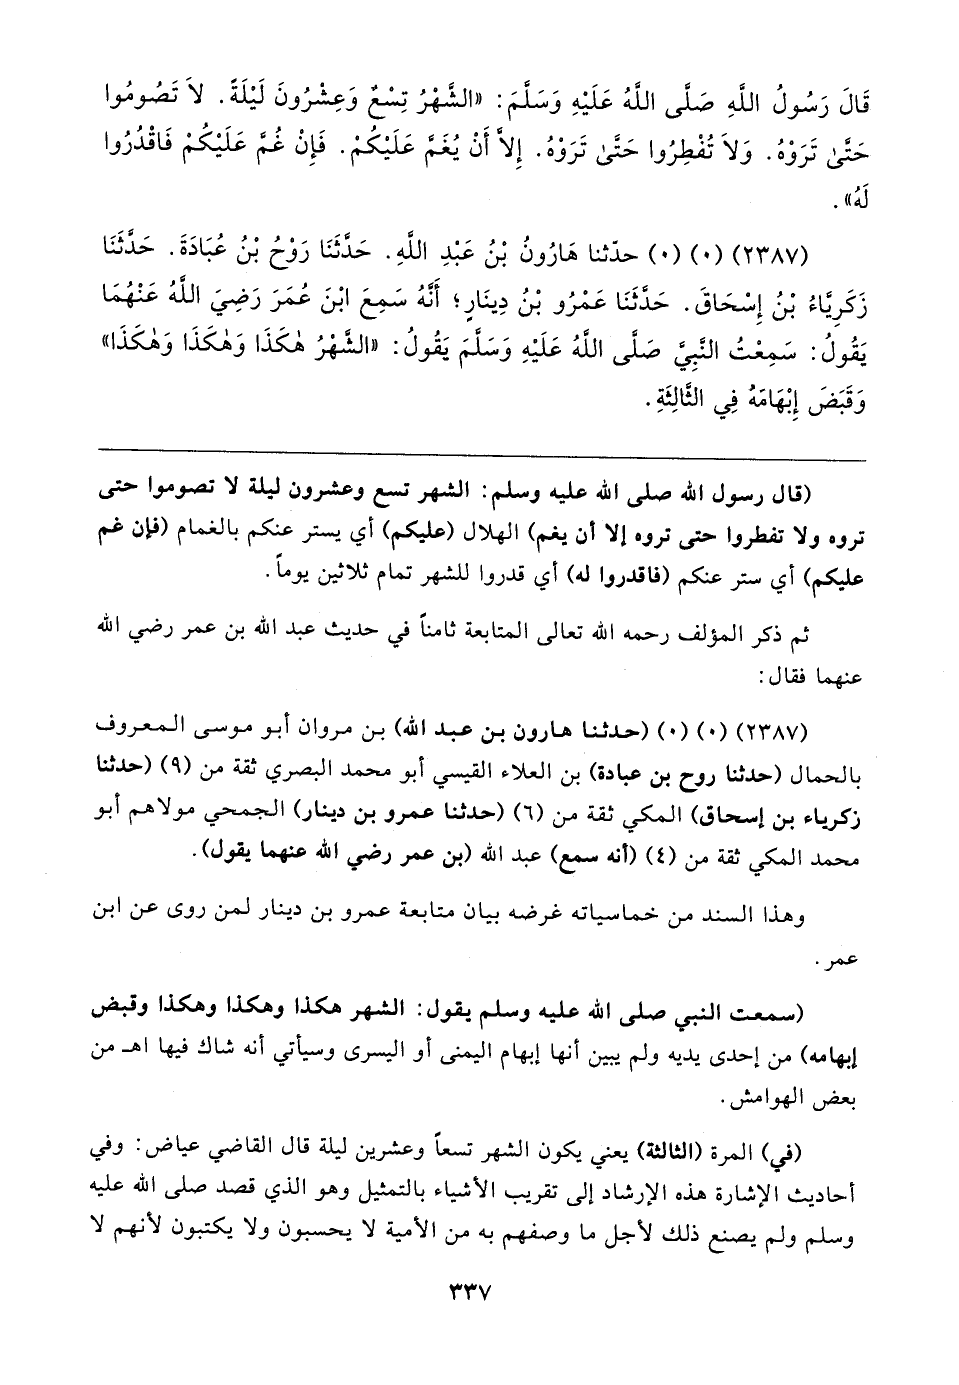 قَالَ رَسُولُ اللَّهِ صَلَّى اللَّهُ عَلَيْهِ وَسَلَّمَ: «الشَّهْرُ تِسْعٌ وَعِشْرُونَ لَيْلَةً. لاَ تَصُومُوا
حَتَّىٰ تَرَوْهُ. وَلاَ تُفْطِرُوا حَتَّىٰ تَرَوْهُ. إِلاَّ أَنْ يُغَمَّ عَلَيْكُمْ. فَإِنْ غُمَّ عَلَيْكُمْ فَاقْدُرُوا
لَهُ».
(٢٣٨٧) (٠) (٠) حدّثنا هَارُونُ بْنُ عَبْدِ اللَّهِ. حَدَّثَنَا رَوْحُ بْنُ عُبَادَةَ. حَدَّثَنَا
زَكَرِيَّاءُ بْنُ إِسْحَاقَ. حَدَّثَنَا عَمْرُو بْنُ دِينَارٍ؛ أَنَّهُ سَمِعَ ابْنَ عُمَرَ رَضِيَ اللَّهُ عَنْهُمَا
يَقُولُ: سَمِعْتُ النَّبِيَّ صَلَّى اللَّهُ عَلَيْهِ وَسَلَّمَ يَقُولُ: «الشَّهْرُ هٰكَذَا وَهٰكَذَا وَهٰكَذَا»
وَقَبَضَ إِبْهَامَهُ فِي الثَّالِثَةِ.
(قال رسول الله صلى الله عليه وسلم: الشهر تسع وعشرون ليلة لا تصوموا حتى
تروه ولا تفطروا حتى تروه إلا أن يغم) الهلال (عليكم) أي يستر عنكم بالغمام (فإن غم
عليكم) أي ستر عنكم (فاقدروا له) أي قدروا للشهر تمام ثلاثين يوماً.
ثم ذكر المؤلف رحمه الله تعالى المتابعة ثامناً في حديث عبد الله بن عمر رضي الله
عنهما فقال:
(٢٣٨٧) (٠) (٠) (حدثنا هارون بن عبد الله) بن مروان أبو موسى المعروف
بالحمال (حدثنا روح بن عبادة) بن العلاء القيسي أبو محمد البصري ثقة من (٩) (حدثنا
زكرياء بن إسحاق) المكي ثقة من (٦) (حدثنا عمرو بن دينار) الجمحي مولاهم أبو
محمد المكي ثقة من (٤) (أنه سمع) عبد الله (بن عمر رضي الله عنهما يقول).
وهذا السند من خماسياته غرضه بيان متابعة عمرو بن دينار لمن روى عن ابن
عمر.
(سمعت النبي صلى الله عليه وسلم يقول: الشهر هكذا وهكذا وهكذا وقبض
إبهامه) من إحدى يديه ولم يبين أنها إبهام اليمنى أو اليسرى وسيأتي أنه شاك فيها اهـ من
بعض الهوامش.
(في) المرة (الثالثة) يعني يكون الشهر تسعاً وعشرين ليلة قال القاضي عياض: وفي
أحاديث الإشارة هذه الإرشاد إلى تقريب الأشياء بالتمثيل وهو الذي قصد صلى الله عليه
وسلم ولم يصنع ذلك لأجل ما وصفهم به من الأمية لا يحسبون ولا يكتبون لأنهم لا
٣٣٧